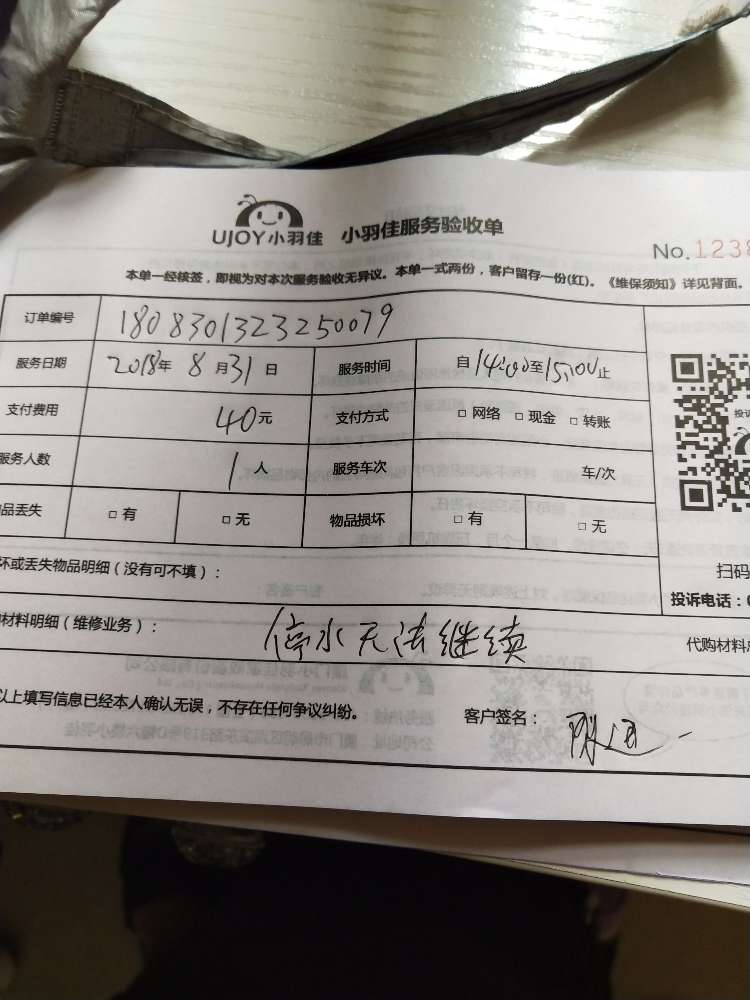 UJOY小羽佳 小羽佳服务验收单
No.1238
本单一经核签，即视为对本次服务验收无异议。本单一式两份，客户留存一份(红)。《维保须知》详见背面。
订单编号 1808301323250079
服务日期 2018年 8月31日 服务时间 自14:00至15:00止
支付费用 40元 支付方式 □网络 □现金 □转账
服务人数 1人 服务车次 车/次
品丢失 □有 □无 物品损坏 □有 □无
坏或丢失物品明细（没有可不填）：
扫码
投诉电话：0
材料明细（维修业务）： 停水无法继续
代购材料总
以上填写信息已经本人确认无误，不存在任何争议纠纷。 客户签名：